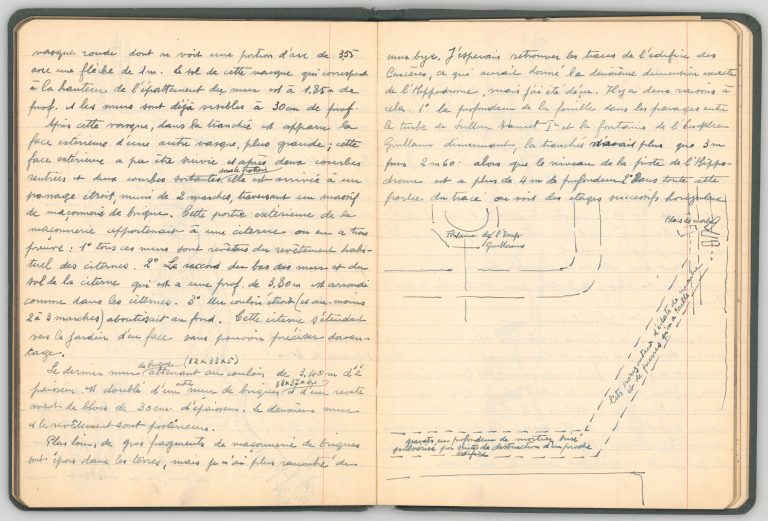 vasque ronde dont se voit une portion d'arc de 355
avec une flèche de 1m. le sol de cette vasque qui correspond
à la hauteur de l'épattement du mur est à 1,85m de
prof. et les murs sont déjà visibles à 30cm de prof.
Après cette vasque, dans la tranchée est apparue la
face extérieure d'une autre vasque, plus grande; cette
face extérieure a pu être suivie et après deux courbes
rentrées et deux courbes sortantes, elle est arrivée à un
sous le trottoir
passage étroit, muni de 2 marches, traversant un massif
de maçonnerie de brique. Cette partie extérieure de la
maçonnerie appartenait à une citerne on en a trois
preuves: 1° tous ces murs sont revêtus du revêtement habi-
tuel des citernes. 2° Le raccord du bas des murs et du
sol de la citerne qui est a une prof. de 3.80m est arrondi
comme dans les citernes. 3° Un couloir étroit (et au moins
2 à 3 marches) aboutissait au fond. Cette citerne s'étendait
vers le jardin d'en face sans pouvoir préciser davan-
tage.
de briques (32x33x5)
Le dernier mur attenant au couloir de 3.40m d'é
paisseur est doublé d'un autre mur de briques et d'un revête
ment de blocs de 20cm d'épaisseur. le deuxième mur
et le revêtement sont postérieurs.
Plus loin, de gros fragments de maçonnerie de briques
sont épars dans les terres, mais je n'ai plus rencontré de
murs byz. J'espérais retrouver les traces de l'édifice des
Carcères, ce qui aurait donné la deuxième dimension exacte
de l'Hippodrome, mais j'ai été déçu. Il y a deux raisons à
cela. 1° la profondeur de la fouille dans les parages entre
le turbé de Sultan Ahmet Ier et la fontaine de l'Empereur
Guillaume diminuant, la tranchée n'avait plus que 3m
puis 2m60 alors que le niveau de la piste de l'Hippo-
drome est a plus de 4m de profondeur. 2° Dans toute cette
partie du tracé on voit des étages successifs horizontaux
Fontaine de l'Emp.
Guillaume
Blocs de marbre
lits horizontaux d'éclats de marbre
et de pierres prov. de taille
gravats en profondeur de mortier brisé
pulvérisé par suite de destruction d'un proche
édifice